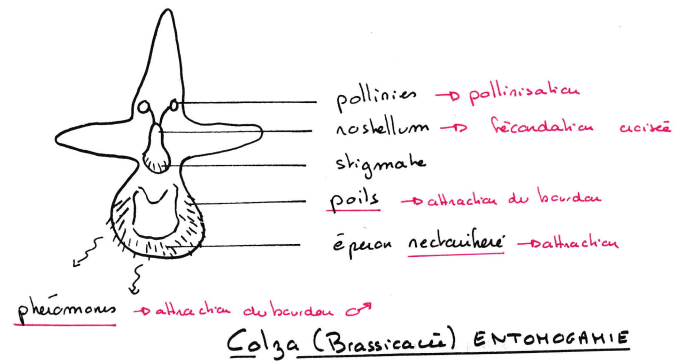 pollinies → pollinisation
rostellum → fécondation croisée
stigmate
poils → attraction du bourdon
éperon nectarifère → attraction
phéromones → attraction du bourdon ♂
Colza (Brassicacée) ENTOMOGAMIE